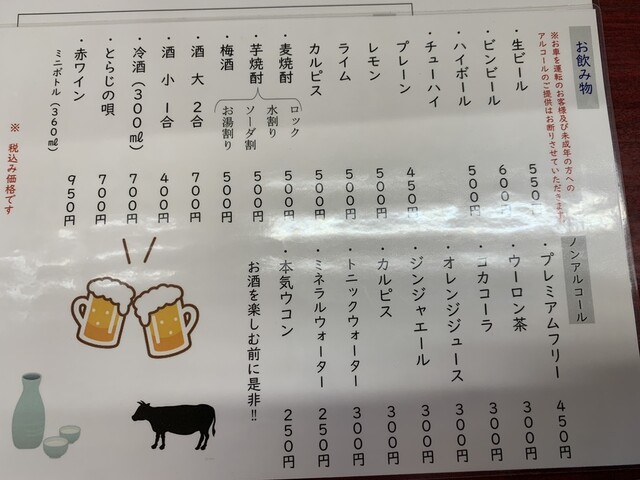 お飲み物
※お車を運転のお客様及び未成年の方への
アルコールのご提供はお断りさせていただきます。
・生ビール 550円
・ビンビール 600円
・ハイボール 500円
・チューハイ
プレーン 450円
レモン 500円
ライム 500円
カルピス 500円
・麦焼酎 500円
・芋焼酎 500円
・梅酒 500円
ロック
水割り
ソーダ割
お湯割り
・酒 大 2合 700円
・酒 小 1合 400円
・冷酒(300㎖) 700円
・とらじの唄 700円
・赤ワイン 950円
ミニボトル(360㎖)
※ 税込み価格です
ノンアルコール
・プレミアムフリー 450円
・ウーロン茶 300円
・コカコーラ 300円
・オレンジジュース 300円
・ジンジャエール 300円
・カルピス 300円
・トニックウォーター 300円
・ミネラルウォーター 250円
・本気ウコン 250円
お酒を楽しむ前に是非!!